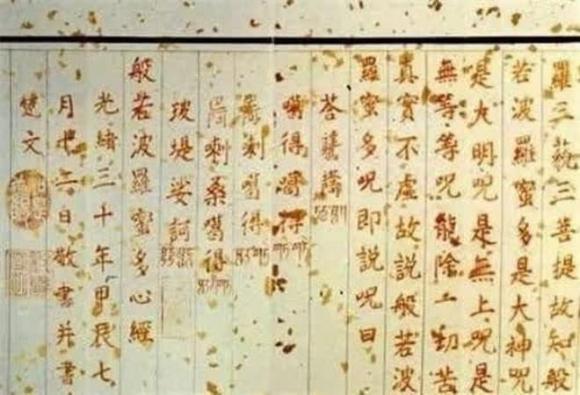 羅三藐三菩提故知般
若波羅蜜多是大神咒
是大明咒是無上咒是
無等等咒能除一切苦
真實不虛故說般若波
羅蜜多咒即說咒曰
噶得噶得
喇噶得
喇桑噶得
玻堤娑訶
般若波羅蜜多心經
光緒三十年甲辰七
月十日敬書并書
梵文